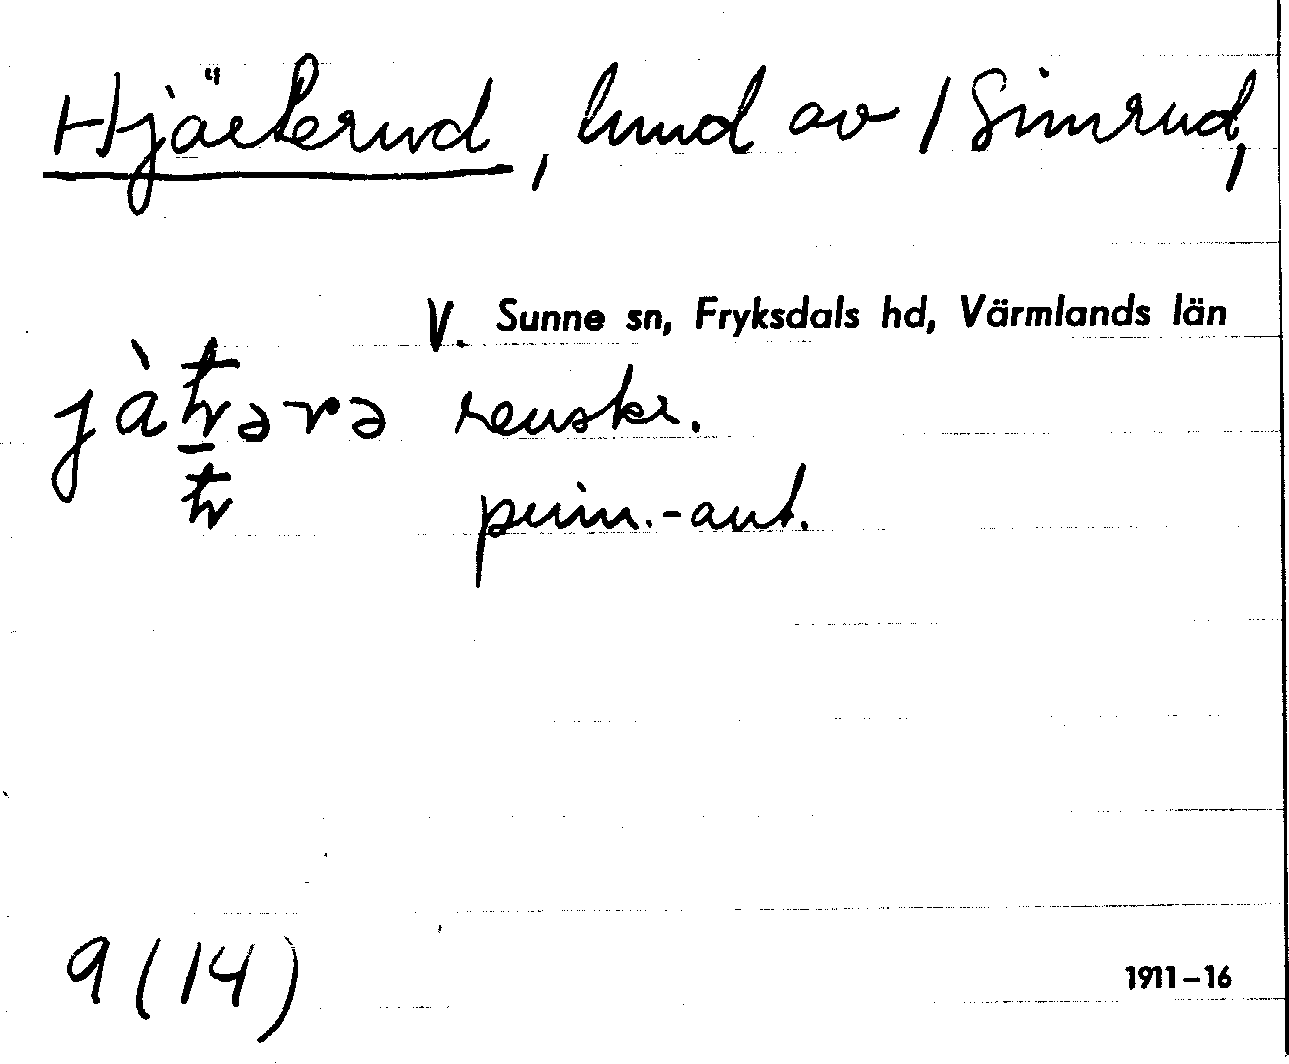 Hjälterud, hmd av 1 Simrud,
V. Sunne sn, Fryksdals hd, Värmlands län
renskr.
prim.-ant.
9 (14)
1911–16